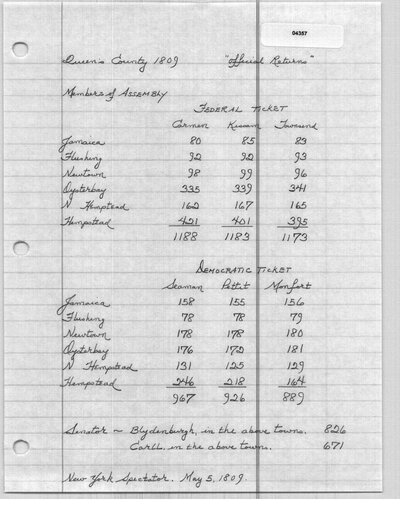 04357
Queens County 1809 "Official Returns"
Members of ASSEMBLY
FEDERAL TICKET
Carmen Kissam Townsend
Jamaica 80 85 83
Flushing 92 92 93
Newtown 98 99 96
Oysterbay 335 339 341
N Hempstead 162 167 165
Hempstead 421 401 395
1188 1183 1173
DEMOCRATIC TICKET
Seaman Pettit Monfort
Jamaica 158 155 156
Flushing 78 78 79
Newtown 178 178 180
Oysterbay 176 172 181
N Hempstead 131 125 129
Hempstead 246 218 164
967 926 889
Senator ~ Blydenburgh, in the above towns. 826
Carll, in the above towns. 671
New York Spectator. May 5, 1809.